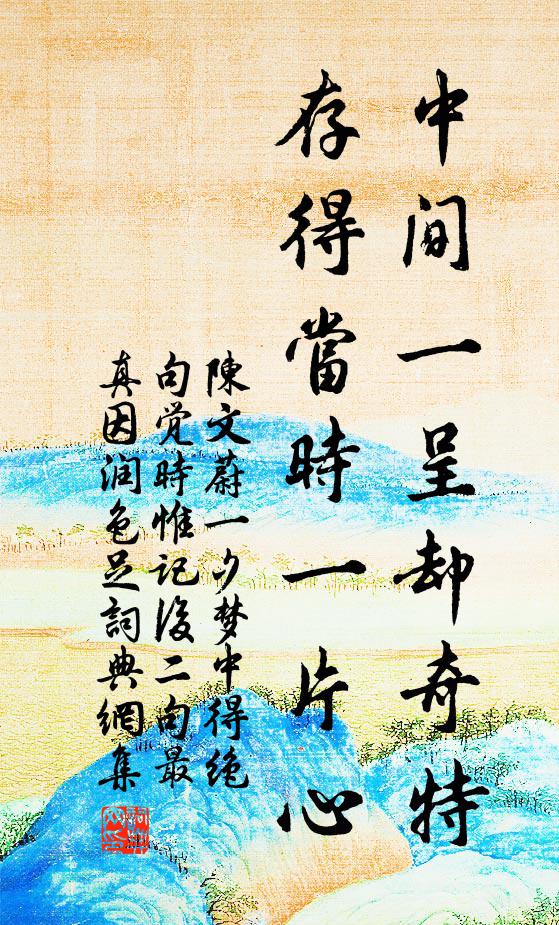 中间一呈却奇特
存得當時一片心
陳文蔚一夕梦中得绝
句觉時惟记後二句最
真因润色足詞典網集